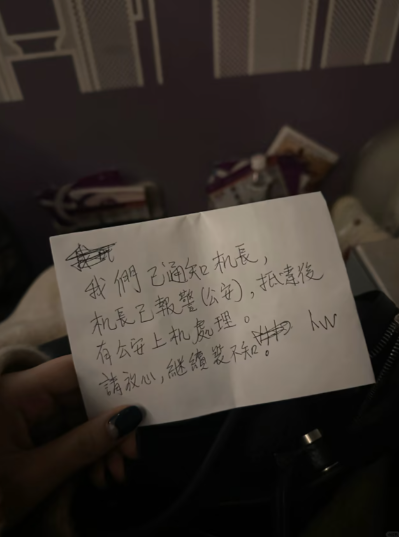 我們已通知机長,
机長已報警(公安),抵達後
有公安上机處理。
請放心,繼續裝不知。